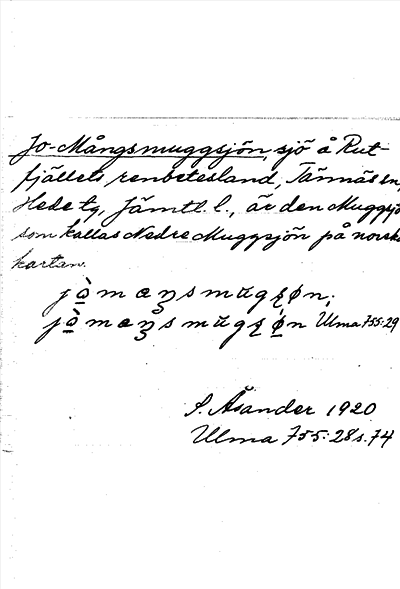 Jo-Mångsmuggsjön, sjö å Rut-
fjällets renbetesland, Tännäs sn,
Hede tg, Jämtl. l., är den Muggsjö
som kallas Nedre Muggsjön på norska
kartan.
Ulma 755:29
S. Åsander 1920
Ulma 755:28 s. 74